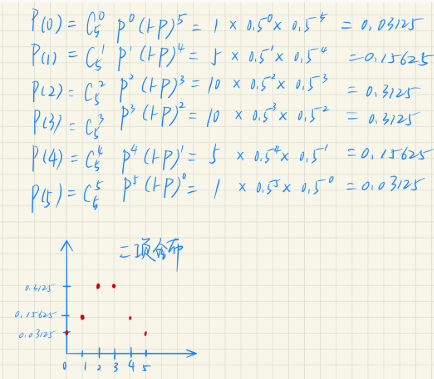 P(0) = C₅⁰ p⁰(1-p)⁵ = 1 × 0.5⁰ × 0.5⁵ = 0.03125
P(1) = C₅¹ p¹(1-p)⁴ = 5 × 0.5¹ × 0.5⁴ = 0.15625
P(2) = C₅² p²(1-p)³ = 10 × 0.5² × 0.5³ = 0.3125
P(3) = C₅³ p³(1-p)² = 10 × 0.5³ × 0.5² = 0.3125
P(4) = C₅⁴ p⁴(1-p)¹ = 5 × 0.5⁴ × 0.5¹ = 0.15625
P(5) = C₅⁵ p⁵(1-p)⁰ = 1 × 0.5⁵ × 0.5⁰ = 0.03125
二项分布
0.3125
0.15625
0.03125
0 1 2 3 4 5